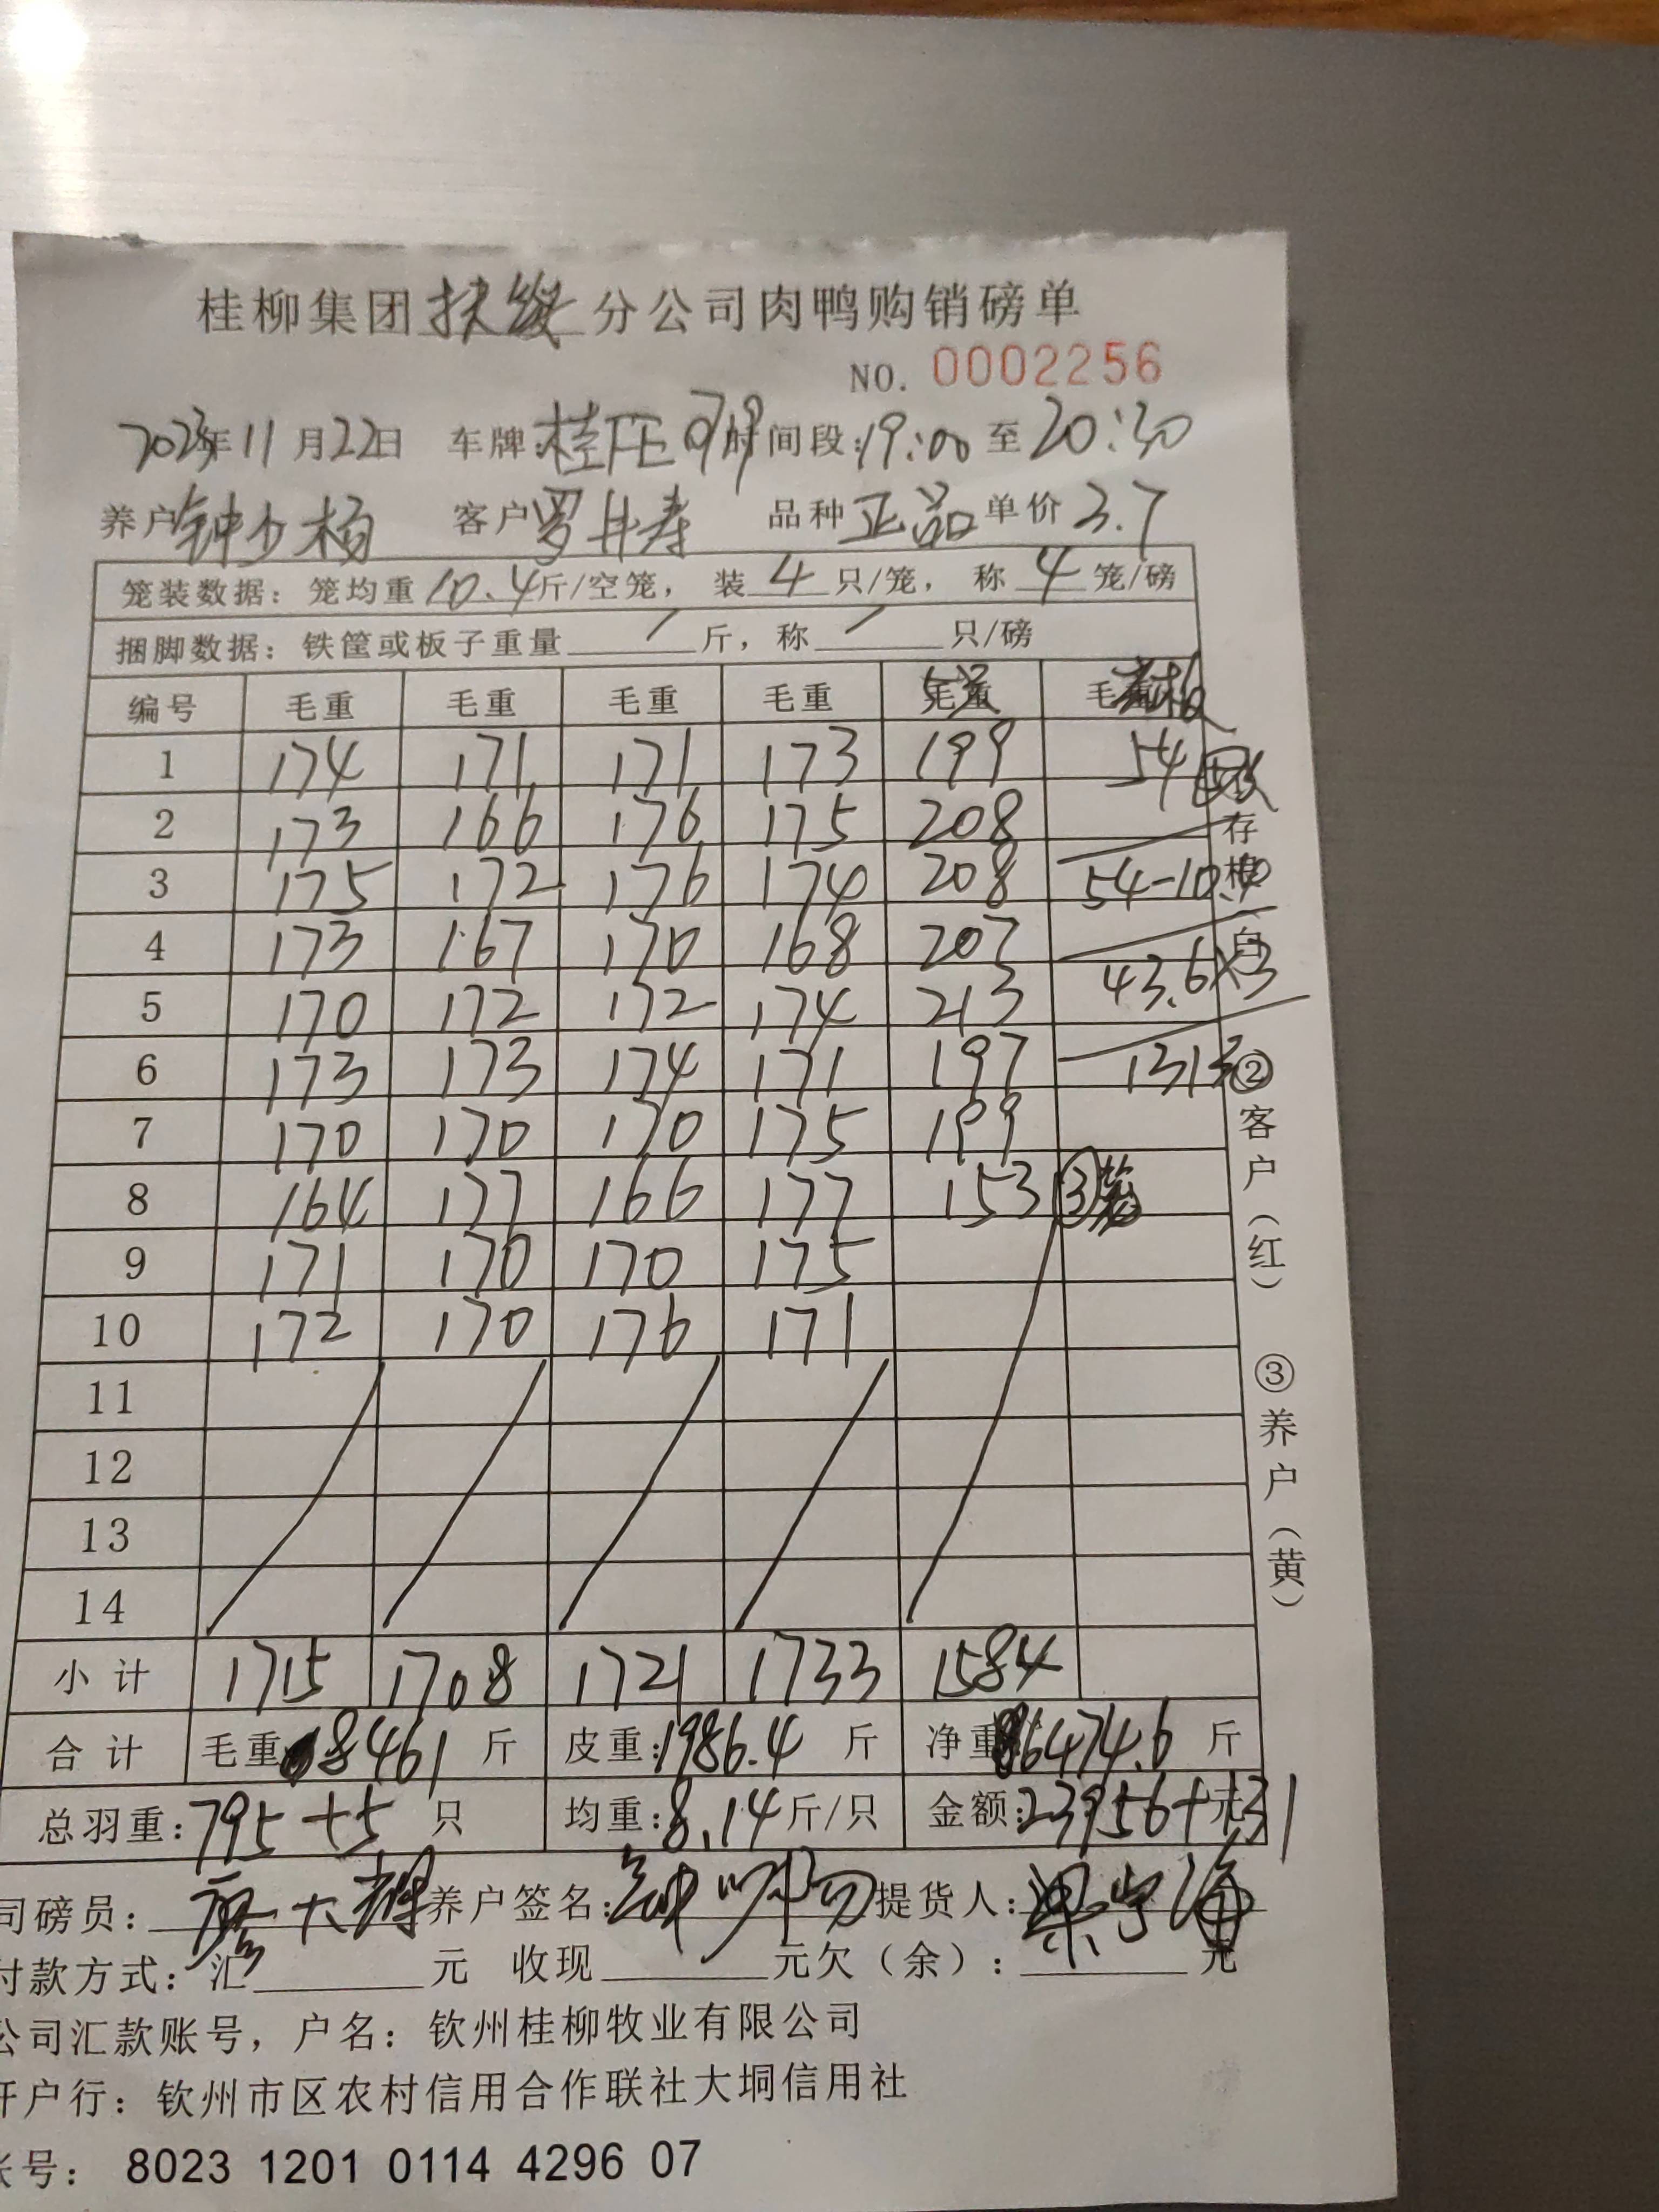 桂柳集团扶绥分公司肉鸭购销磅单
NO. 0002256
2023年11月22日 车牌: 时间段:19:00至20:30
养户钟少杨 客户罗井寿 品种正品 单价3.7
笼装数据：笼均重10.4斤/空笼，装4只/笼，称4笼/磅
捆脚数据：铁筐或板子重量/斤，称/只/磅
编号 毛重 毛重 毛重 毛重 毛重 毛重
1 174 171 171 173 199 54
2 173 166 176 175 208
3 175 172 176 174 208 54-10.4
4 173 167 170 168 207
5 170 172 172 174 213 43.6×3
6 173 173 174 171 197 131元
7 170 170 170 175 199
8 164 177 166 177 153 ③笼
9 171 170 170 175
10 172 170 176 171
11
12
13
14
小计 1715 1708 1721 1733 1584
合计 毛重:8461斤 皮重:1986.4斤 净重:6474.6斤
总羽重:795+5只 均重:8.14斤/只 金额:23956+131元
司磅员： 养户签名： 提货人:梁宇海
付款方式：汇 元 收现 元欠（余）： 元
公司汇款账号，户名：钦州桂柳牧业有限公司
开户行：钦州市区农村信用合作联社大垌信用社
账号： 8023 1201 0114 4296 07
存根
白
②客户（红）
③养户（黄）